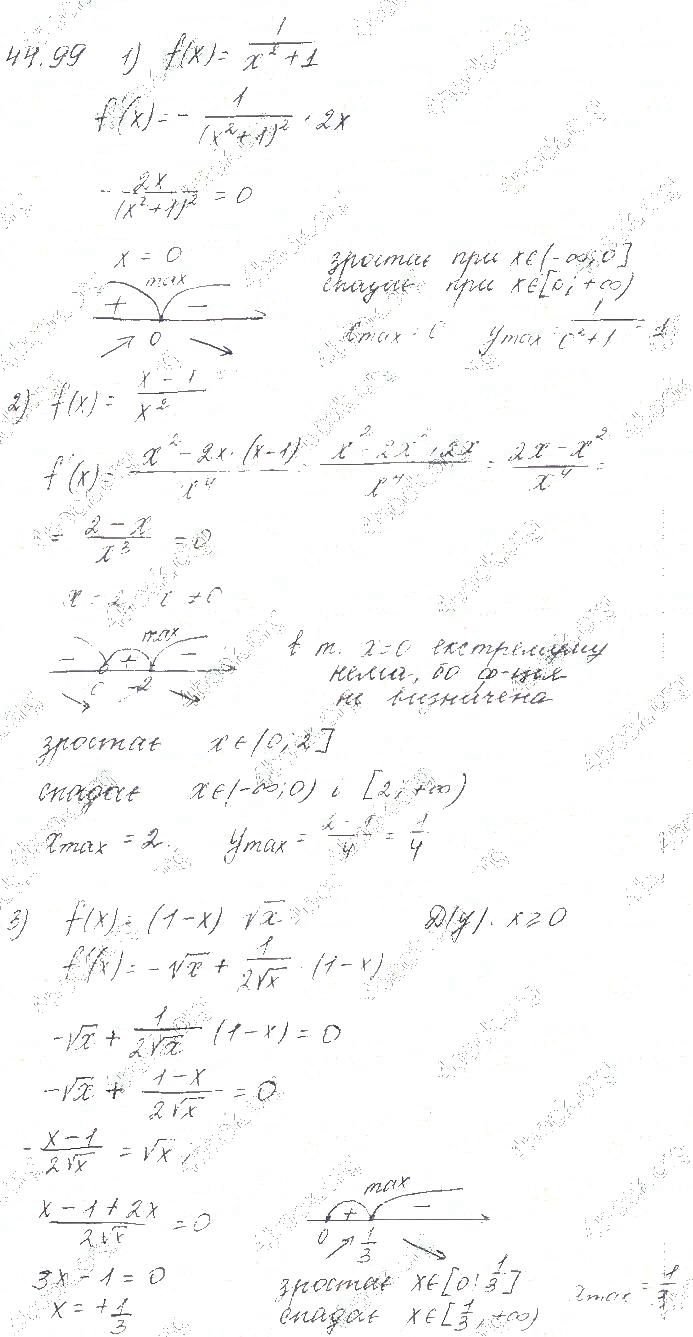 44.99 1) f(x) = 1/(x² + 1)
f'(x) = - 1/(x² + 1)² · 2x
- 2x/(x² + 1)² = 0
x = 0
max
+ -
0
зростає при x ∈ (-∞; 0]
спадає при x ∈ [0; +∞)
x max = 0 y max = 1/(0² + 1) = 1
2) f(x) = (x - 1)/x²
f'(x) = (x² - 2x · (x - 1))/x⁴ = (x² - 2x² + 2x)/x⁴ = (2x - x²)/x⁴ =
= (2 - x)/x³ = 0
x = 2 x ≠ 0
max
- + -
0 2
в т. x = 0 екстремуму
нема, бо ф-ція
не визначена
зростає x ∈ (0; 2]
спадає x ∈ (-∞; 0) і [2; +∞)
x max = 2. y max = (2 - 1)/4 = 1/4
3) f(x) = (1 - x) √x D(y). x ≥ 0
f'(x) = -√x + 1/(2√x) · (1 - x)
-√x + 1/(2√x) (1 - x) = 0
-√x + (1 - x)/(2√x) = 0
- (x - 1)/(2√x) = √x
(x - 1 + 2x)/(2√x) = 0
max
+ -
0 1/3
3x - 1 = 0
x = + 1/3
зростає x ∈ [0; 1/3]
спадає x ∈ [1/3; +∞)
x max = 1/3